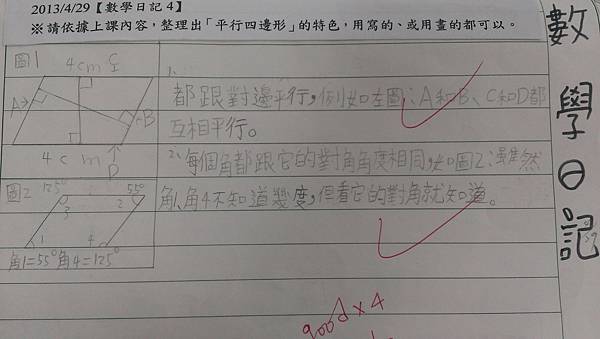 2013/4/29【數學日記 4】
※請依據上課內容，整理出「平行四邊形」的特色，用寫的、或用畫的都可以。
數學日記
圖1
4cm
C
A→
←B
4cm
↑
D
1、
都跟對邊平行，例如左圖：A和B、C和D都
互相平行。
2、每個角都跟它的對角角度相同，如圖2：雖然
角1、角4不知道幾度，但看它的對角就知道。
圖2
125°
55°
3
2
1
4
角1=55°角4=125°
good×4